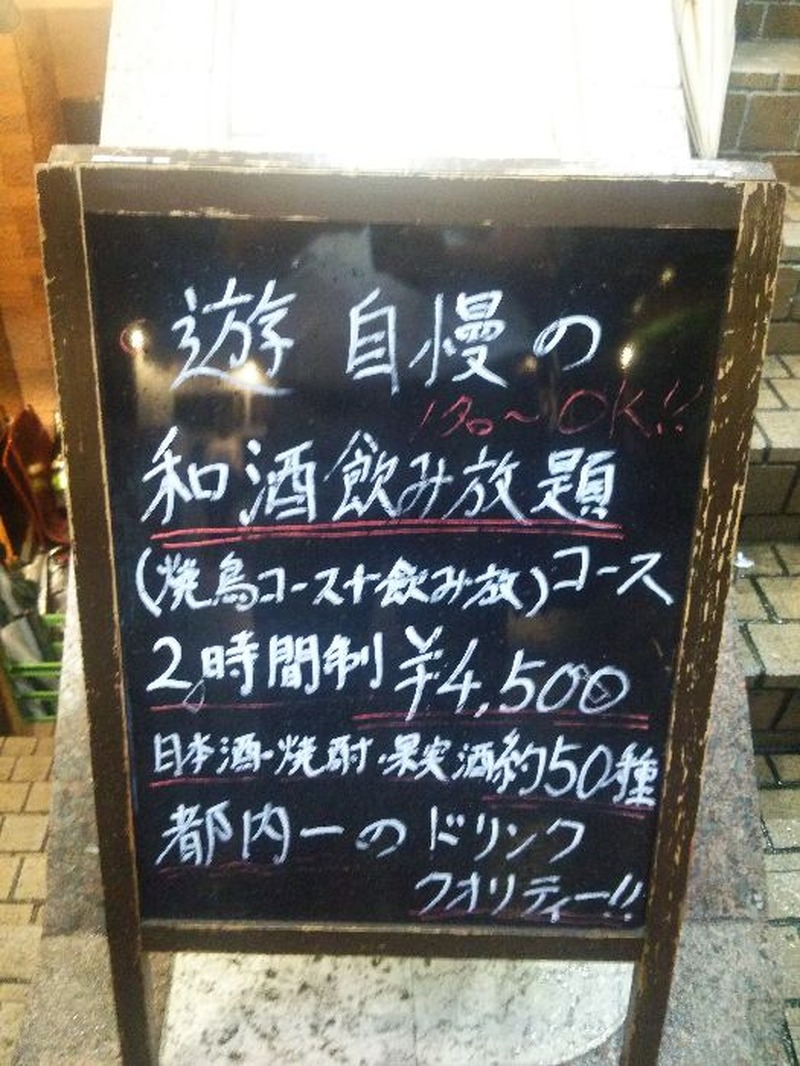 遊 自慢の
1名～OK!!
和酒飲み放題
(焼鳥コース+飲み放)コース
2時間制 ¥4,500
日本酒・焼酎・果実酒約50種
都内一のドリンク
クオリティー!!